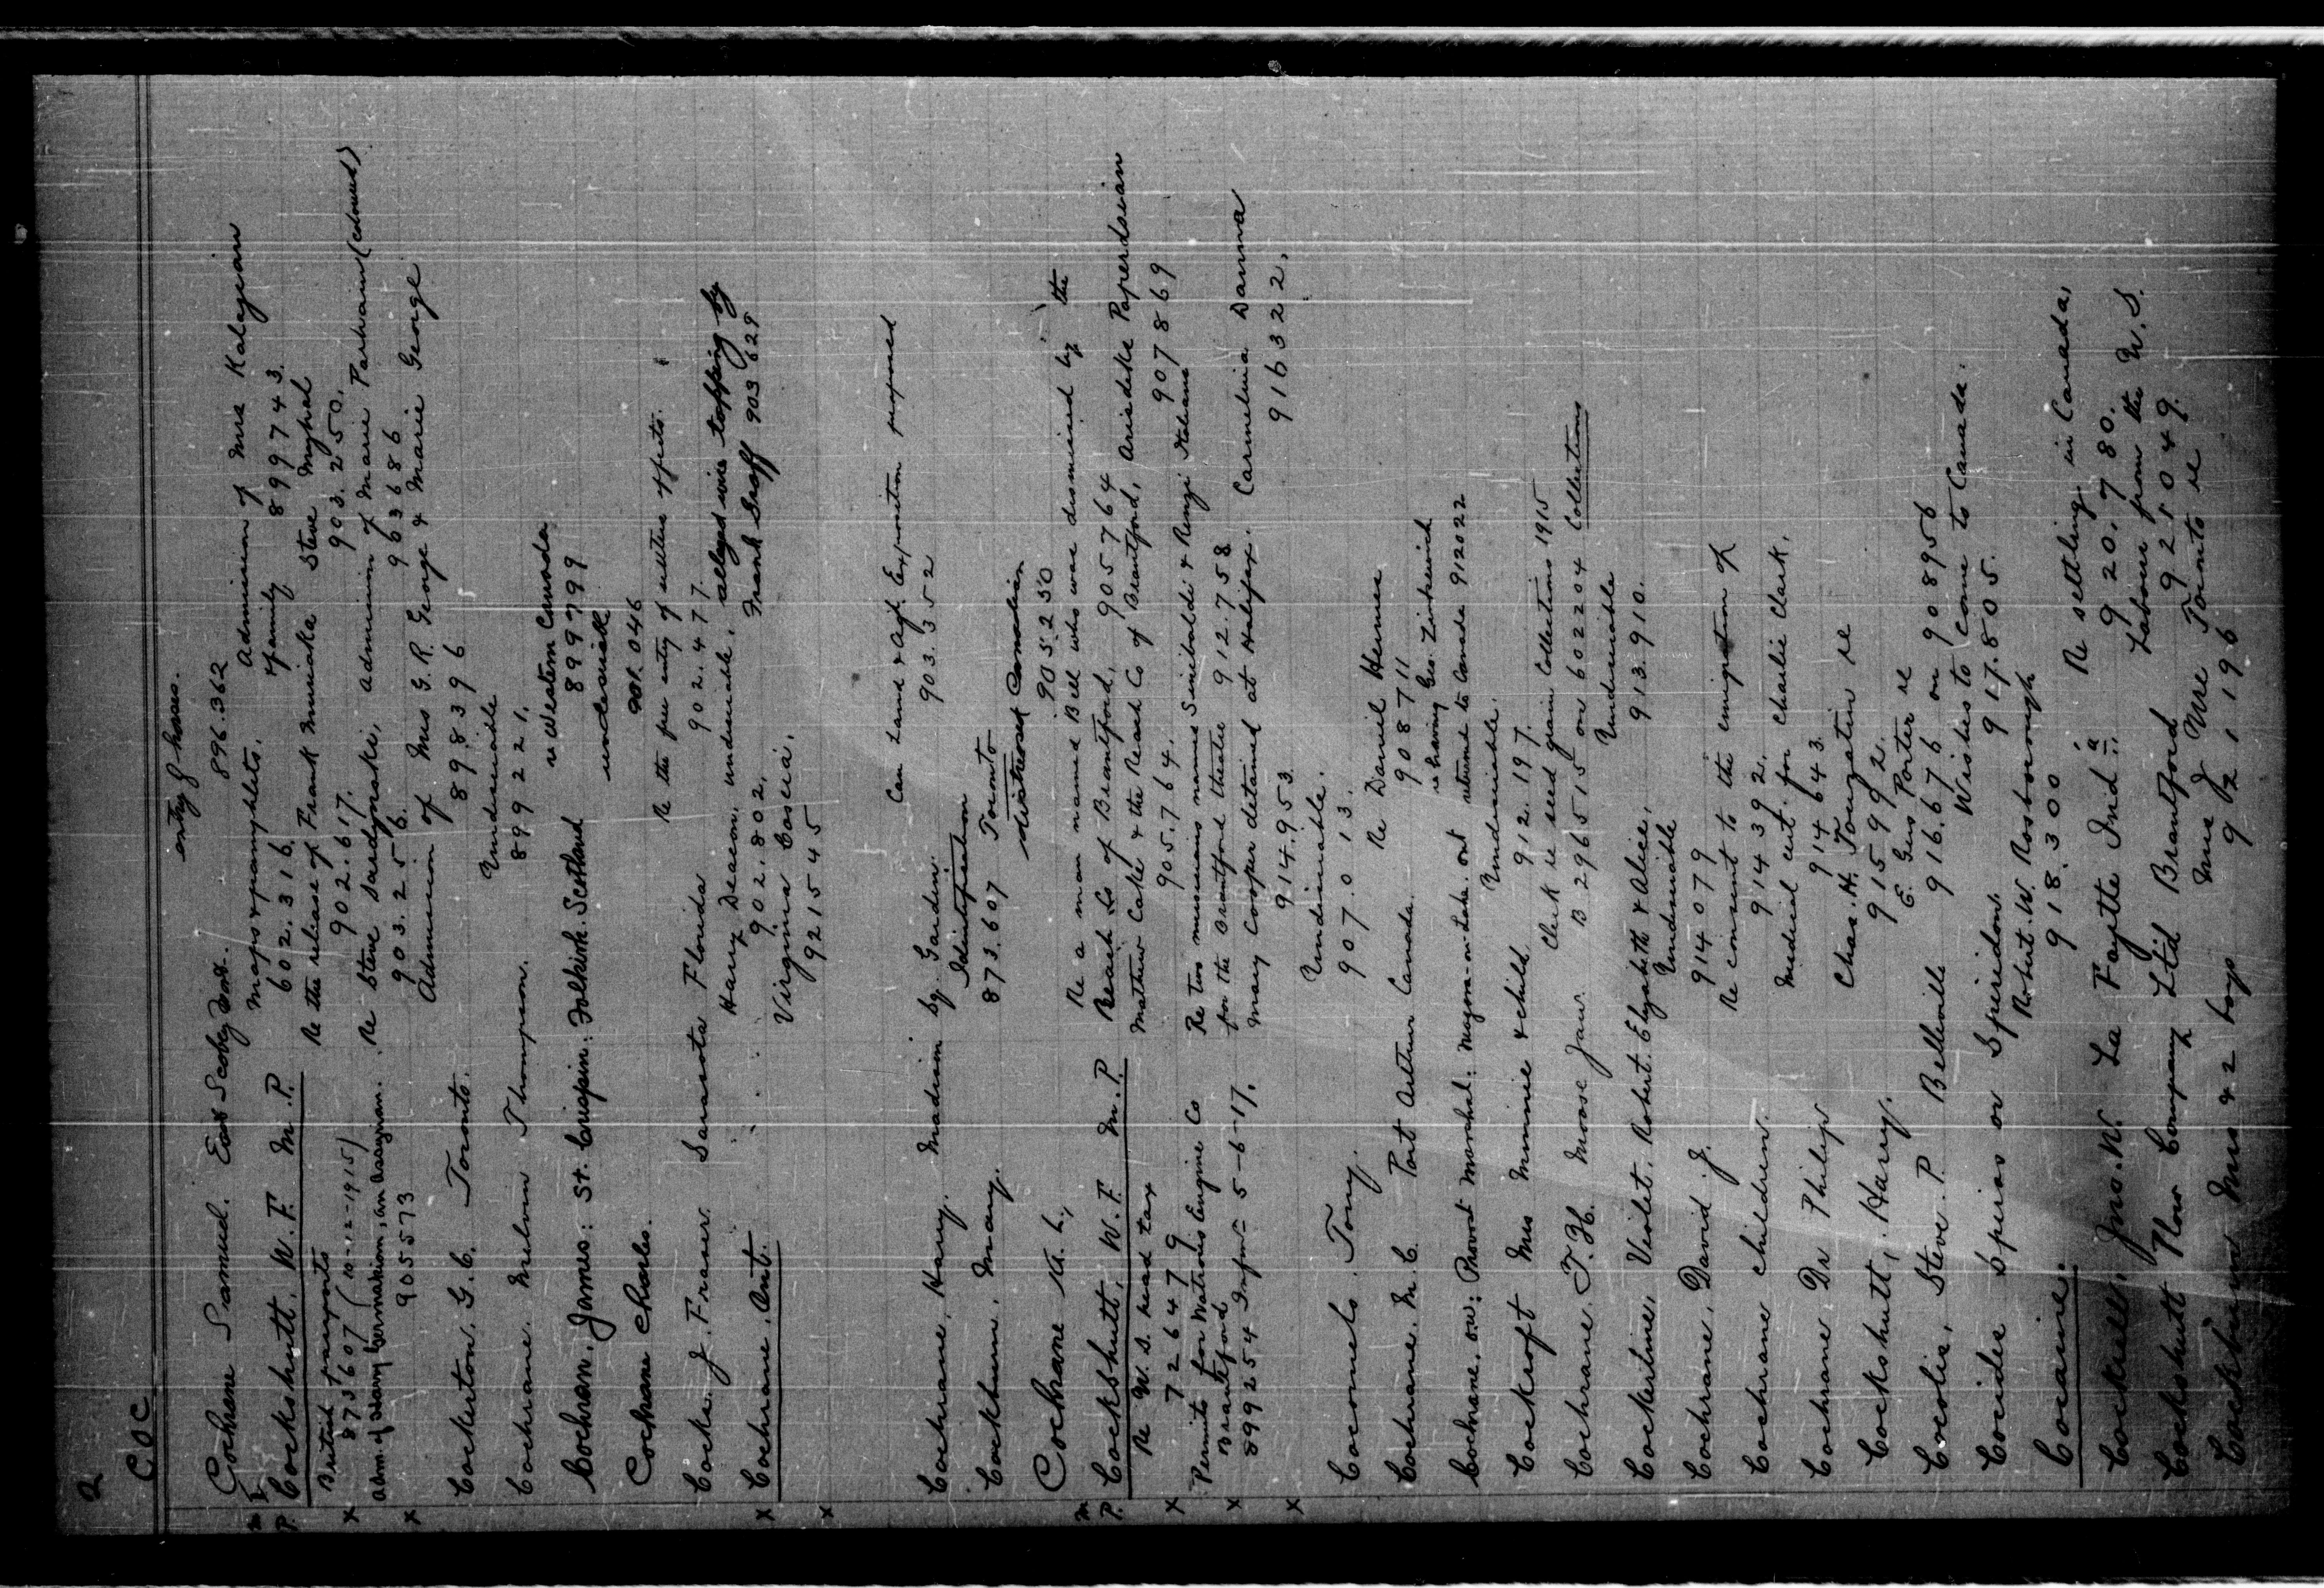 2
C.O.C
entry of horses.
Cochrane Samuel. East Scobey 896.362
M P. Cockshutt, W. F. M.P. maps & pamphlets. Admission of Mrs Kalagian
602.316. & family 899743.
British passports Re the release of Frank Steve
x 873607 (10-12-1915) 902.617. 903.250.
Adm. of an Assyrian. Re Steve Admission of Marie Parhain (coloured)
x 905573 903.256. 903686
Admission of Mrs G. R. George & Marie George
Cockerton, G. C. Toronto. 898396
Undesirable
Cochrane, Melvin Thompson. 899221.
re Western Canada
Cochran, James: St. Crispin: Folkirk. Scotland 899799
undesirable
Cochrane Charles. 901.046
Re the free entry of settlers effects.
Cocke. J. Fraser. Sarasota Florida 902.477.
Harry Deacon, undesirable. alleged wire tapping by
x Cochrane, Ont. 902.802. Frank Graff 903629
Virginia Coscia.
x 921545
Can Land & Agl. Exposition proposed
Cochrane, Harry. Madison Sq. Garden. 903.352
Identification
Cockburn, Mary. 873.607 Toronto
distressed Canadian
Cochrane K. L. 905.250
M P. Cockshutt, W. F. M.P. Re a man named Bell who was dismissed by the
Re U.S. head tax Reach Co of Brantford, 905764
x 726479 Mathew Cake & the Reach Co of Brantford, 905764 Arisdake Paperdsian
905.764. 907869
Permits for Watrous Engine Co Re two musicians named Sinibaldi & Renzi Italians
x Brantford for the Brantford theatre 912.758
899254 Infor= 5-6-17. Mary Cooper detained at Halifax. Carmelina Danna
x 914.953 916322.
Undesirable.
Coconets. Tony. 907.013.
Re Daniel Hermes
Cochrane. M. C. Port Arthur Canada. 908711
re having Geo. Zinkewich
Cochrane. O.W: Provost Marshal: Niagara-on-Lake. Ont returned to Canada 912022
Undesirable.
Cockroft Mrs Minnie & child 912.197.
Clerk re seed grain Collections 1915
Cochrane. T. H. Moose Jaw. B 296515 on 602204 Collections
Undesirable
Cockertine, Violet, Robert. Elizabeth & Alice. 913.910.
Undesirable
Cochrane, David J. 914079
Re consent to the emigration of
Cochrane children. 914392.
Medical cert. for Charlie Clark.
Cochrane Dr Philip 914643.
Chas. H. re
Cockshutt, Harry. 915992.
E. Gus Porter re
Cocolis, Steve. P. Belleville 916.676 on 908956
Wishes to come to Canada.
Cocides Spiros or Spiridon. 917.805.
Robert. W. Rosborough
Cocaine. 918.300
Re settling in Canada,
Cockrell, Jno. W. La Fayette Ind 920.780.
Labour from the U.S.
Cockshutt Plow Company Ltd Brantford 921049.
Toronto re
Cockburn Mrs & 2 boys 921196